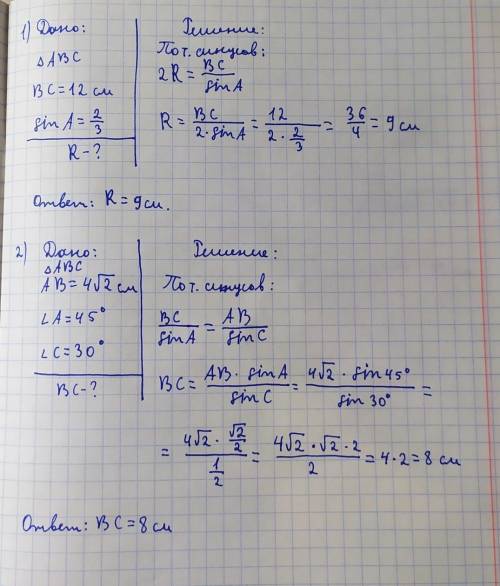 1) Дано:
△ABC
BC = 12 см
sin A = 2/3
R - ?
Решение:
По т. синусов:
2R = BC/sin A
R = BC/(2·sin A) = 12/(2·2/3) = 36/4 = 9 см
Ответ: R = 9 см.
2) Дано:
△ABC
AB = 4√2 см
∠A = 45°
∠C = 30°
BC - ?
Решение:
По т. синусов:
BC/sin A = AB/sin C
BC = AB · sin A/sin C = 4√2 · sin 45°/sin 30° =
= (4√2 · √2/2)/(1/2) = (4√2 · √2 · 2)/2 = 4 · 2 = 8 см
Ответ: BC = 8 см